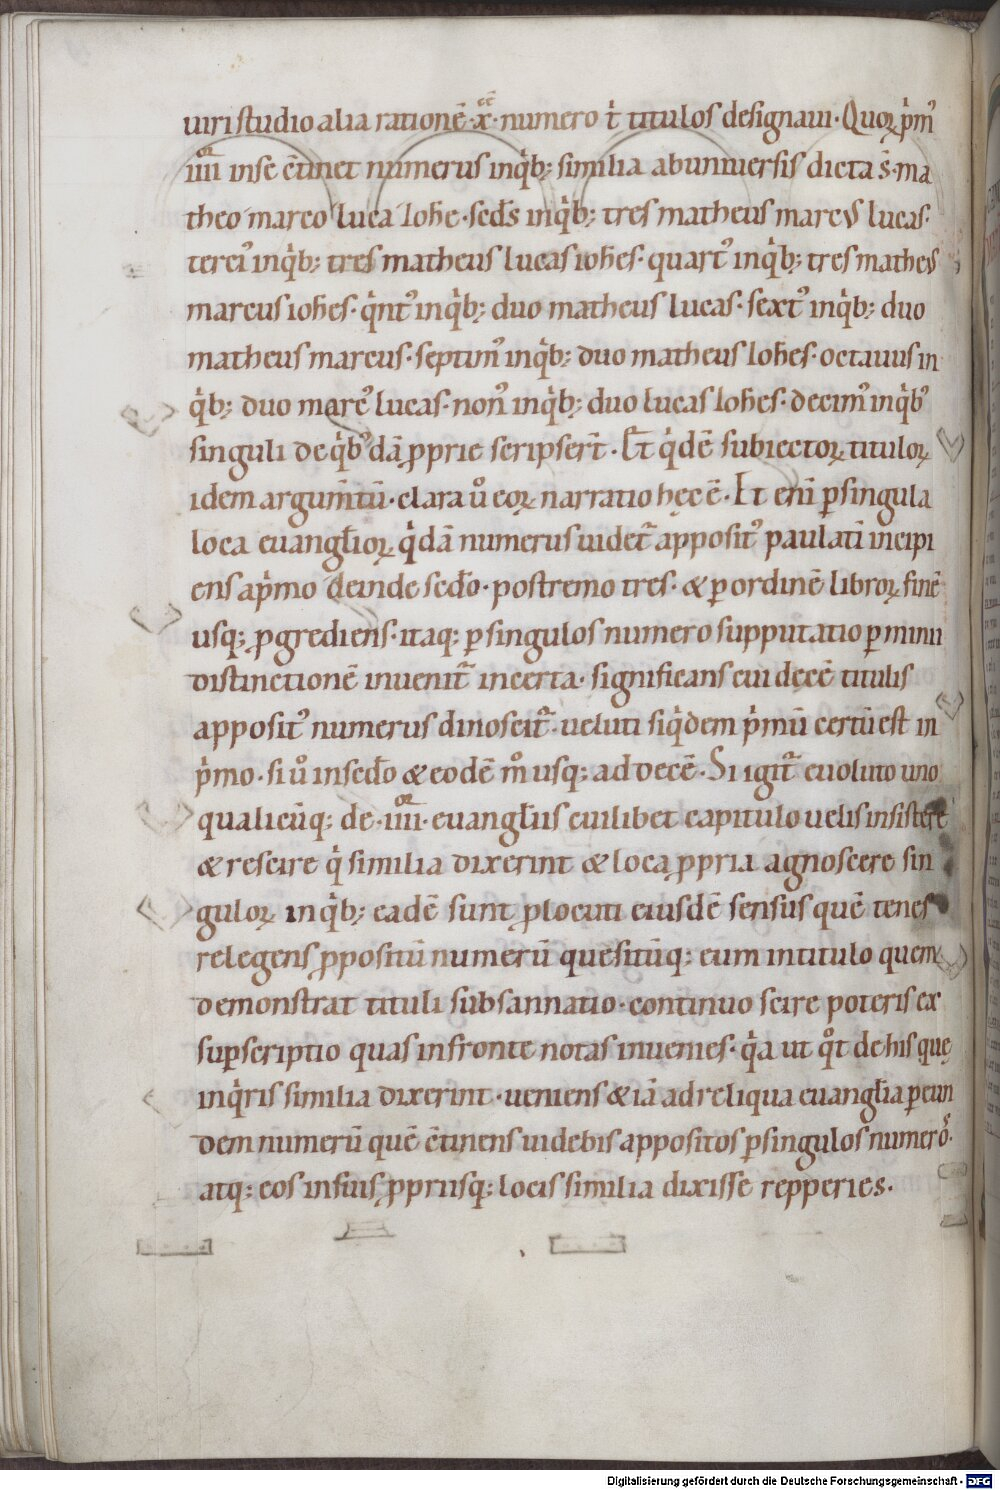 uiri studio alia rationē ·x̄· numero t̄ titulos designaui· Quoꝝ p̍mꝰ
iiii inse c̄tinet numerus inq̍b; similia abuniuersis dicta s̄· ma
theo marco luca Iohe· scd̄s inq̍b; tres matheus marcus lucas·
terciꝰ inq̍b; tres matheus lucas ioh̄es· quartꝰ inq̍b; tres matheus
marcus ioh̄es· q̍ntꝰ inq̍b; duo matheus lucas· sextꝰ inq̍b; duo
matheus marcus· septimꝰ inq̍b; duo matheus Ioh̄es· octauus in
q̍b; duo marcꝰ lucas· nonꝰ inq̍b; duo lucas Ioh̄es· decimꝰ inq̍bꝰ
singuli de q̍bꝰdā ꝓprie scripser̄t· Et q̍dē subiectoꝝ tituloꝝ
idem argum̄tū· clara u̾ eoꝝ narratio hęc ē· Et eni̅ ꝑsingula
loca euangl̄ioꝝ q̍dā numerus uidet᷑ appositꝰ paulati̅ incipi
ens ap̍mo deinde scd̄o· postremo tres· & ꝑ ordinē libroꝝ finē
usq; ꝓgrediens· itaq; ꝑ singulos numero supputatio ꝑ minii
distinctionē inuenit᷑ incerta· significans cui decē titulis
appositꝰ numerus dinoscit᷑· ueluti siq̍dem p̍mū certū est in
p̍mo· si u̾ in scd̄o & eodē m̊ usq; ad decē· Si igit᷑ euoluto uno
qualicūq; de ·iiii· euangl̄iis cuilibet capitulo uelis insistere
& rescire q̍ similia dixerint & loca ꝓpria agnoscere sin
guloꝝ inq̍b; eadē sunt ꝓlocuti eiusdē sensus quē tenes
relegens ꝓpositū numerū quesitūq; eum intitulo quem
demonstrat tituli subsannatio· continuo scire poteris ex
sup̄scriptio quas in fronte notas inuenies· q̍a ut q̊t de his que
inq̍ris similia dixerint· ueniens & iā ad reliqua euangl̄ia ꝑ eun
dem numerū quē c̄tinens uidebis appositos ꝑsingulos numero·
atq; eos in suis ꝓpriisq; locis similia dixisse repperies·
Digitalisierung gefördert durch die Deutsche Forschungsgemeinschaft - DFG